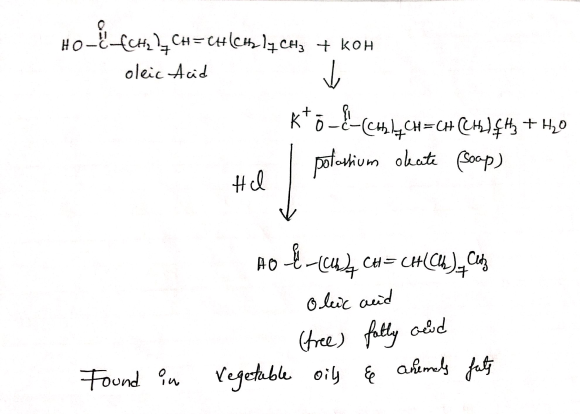 O
HO-C-(CH₂)₇CH=CH(CH₂)₇CH₃ + KOH
oleic Acid
K⁺ Ō-C-(CH₂)₇CH=CH(CH₂)₇CH₃ + H₂O
potassium oleate (soap)
HCl
HO-C-(CH₂)₇CH=CH(CH₂)₇CH₃
Oleic acid
(free) fatty acid
Found in vegetable oils & animals fats